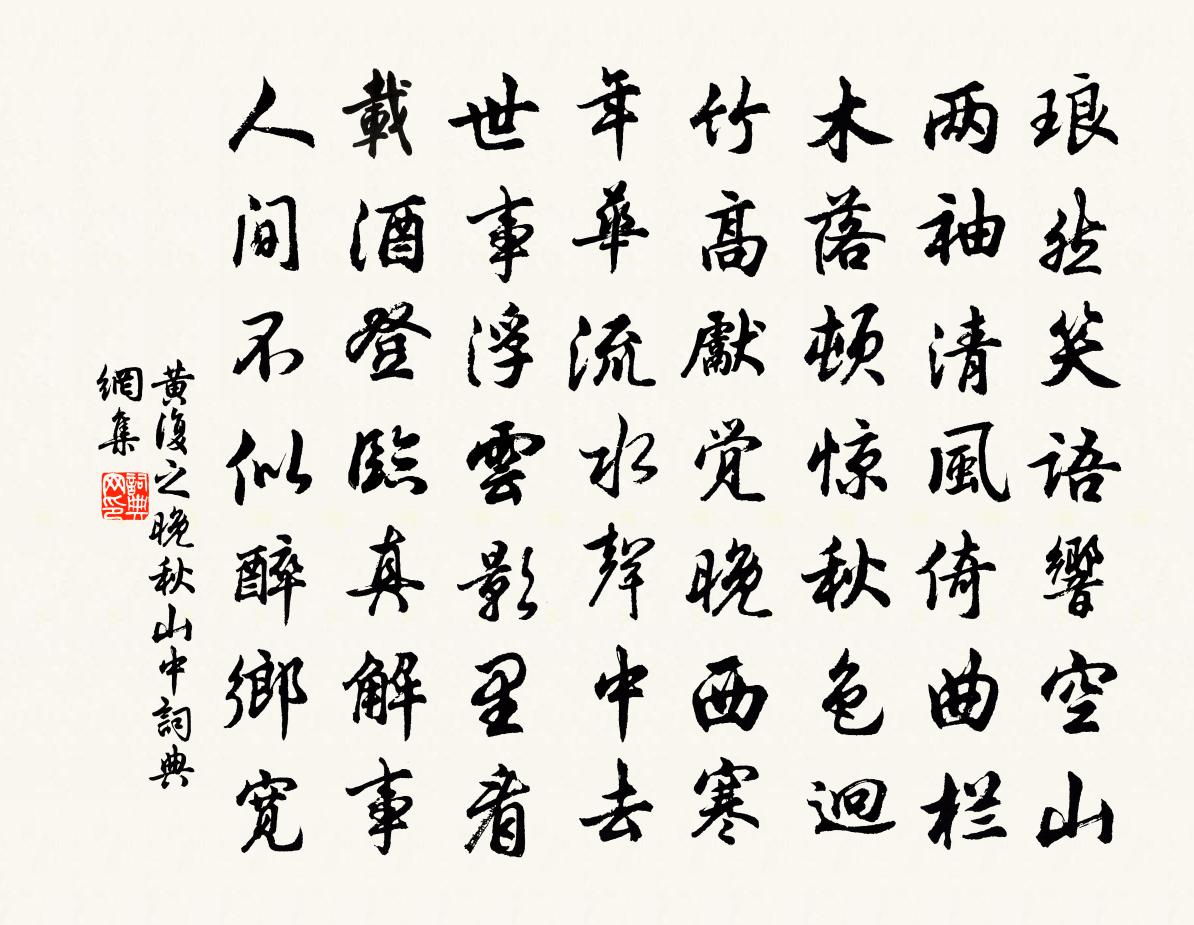 琅然笑语響空山
两袖清風倚曲栏
木落顿惊秋色迥
竹高獻觉晚西寒
年華流水聲中去
世事浮雲影里看
載酒登臨真解事
人间不似醉鄉寬
黄復之晚秋山中詞典
網集
詞典
网印